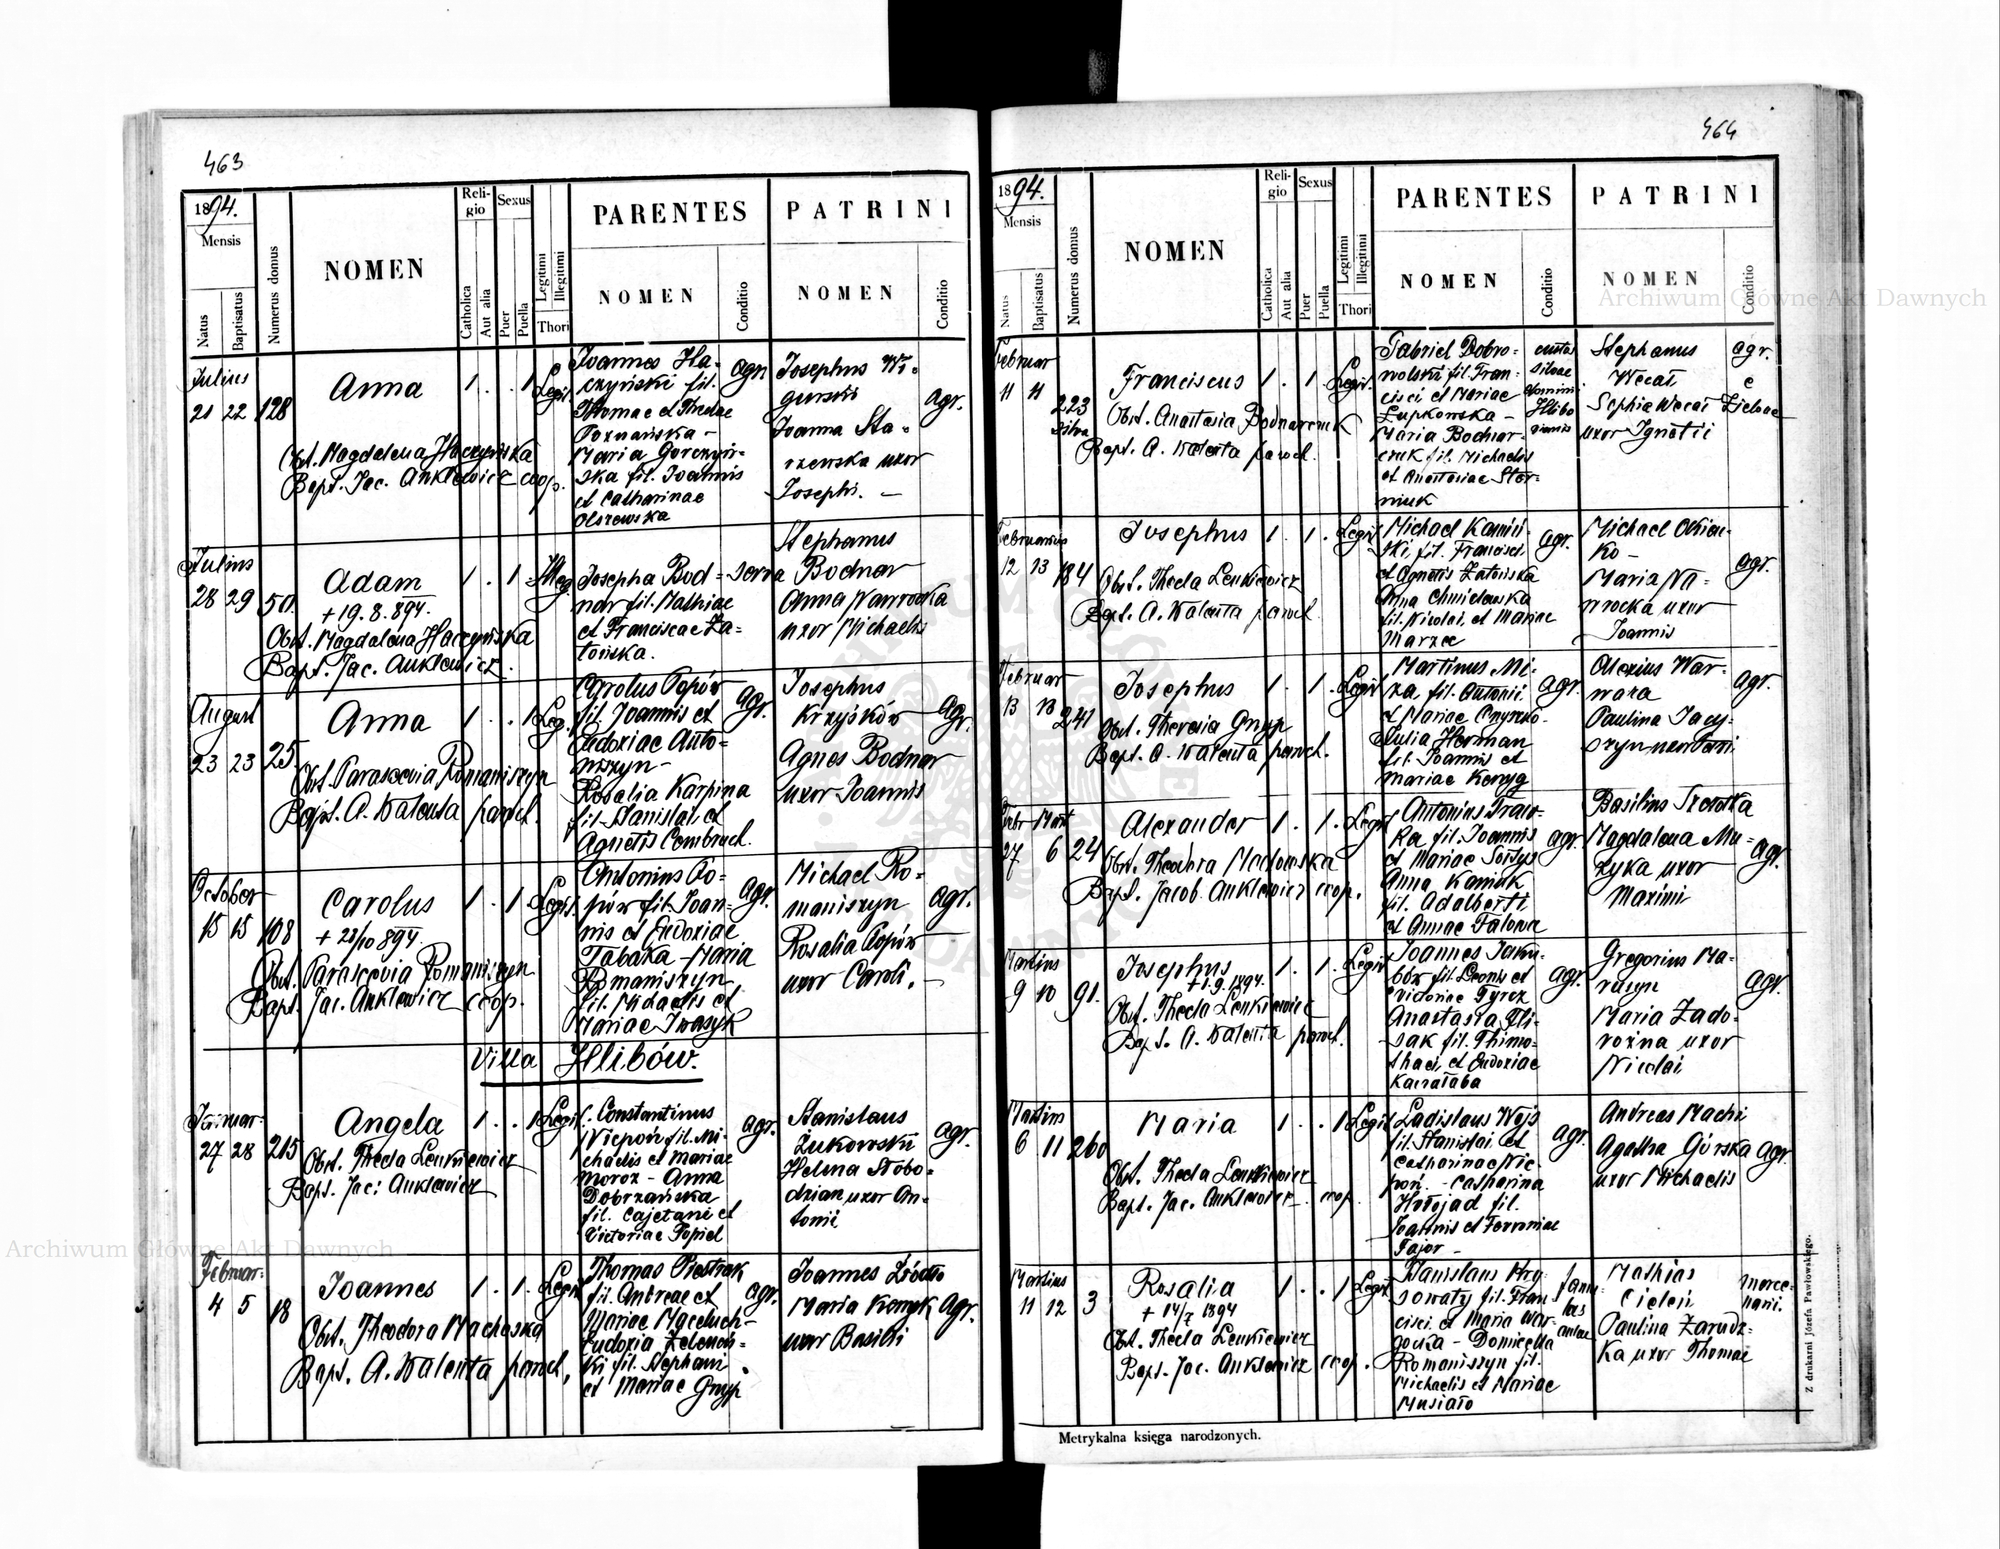 463
1894.
Mensis
Natus
Baptisatus
Numerus domus
NOMEN
Religio
Catholica
Aut alia
Sexus
Puer
Puella
Legitimi
Illegitimi
Thori
PARENTES
NOMEN
Conditio
PATRINI
NOMEN
Conditio
Julius
21 22 128
Anna
1 . . 1 Legit.
Obst. Magdalena Haczyńska
Bapt. Jac. Anklewicz coop.
Joannes Ha-
czyński fil.
Thomae et Theclae
Poznańska -
Maria Gorczyń-
ska fil. Joannis
et Catharinae
Olszewska
agr.
Josephus Wi-
gurski
Joanna Sta-
rzewska uxor
Josephi. -
agr.
Julius
28 29 50.
Adam
+ 19. 8. 894.
1 . 1 . Illeg.
Obst. Magdalena Haczyńska
Bapt. Jac. Anklewicz.
Josepha Bod-
nar fil. Mathiae
et Franciscae Za-
tońska.
serva
Stephanus
Bodnar
Anna Nawrocka
uxor Michaelis
August
23 23 25.
Anna
1 . . 1 Leg.
Obst. Parascevia Romaniszyn
Bapt. A. Walenta paroch.
Carolus Popów
fil. Joannis et
Eudoxiae Anto-
niszyn -
Rosalia Karpina
fil. Stanislai et
Agnetis Cembruch.
agr.
Josephus
Krzyśków
Agnes Bodnar
uxor Joannis
agr.
October
15 15 108
Carolus
+ 23/10 894.
1 . 1 Legit.
Obst. Parascevia Romaniszyn
Bapt. Jac. Anklewicz coop.
Antonius Po-
pów fil. Joan-
nis et Eudoxiae
Tabaka - Maria
Romaniszyn
fil. Michaelis et
Mariae Iwasyk
agr.
Michael Ro-
maniszyn
Rosalia Popów
uxor Caroli. -
agr.
Villa Hlibów.
Januar:
27 28 215
Angela
1 . . 1 Legit.
Obst. Thecla Leukiewicz
Bapt. Jac: Anklewicz
Constantinus
Niepoń fil. Mi-
chaelis et Mariae
Moroz - Anna
Dobrzańska
fil. Cajetani et
Victoriae Popiel
agr.
Stanislaus
Żukowski
Helena Słobo-
dzian uxor An-
tonii
agr.
Februar:
4 5 18
Joannes
1 . 1 . Legit.
Obst. Theodora Machoska
Bapt. A. Walenta paroch.
Thomas Piestrak
fil. Andreae et
Mariae Maceluch -
Eudoxia Zeleńs-
ki fil. Stephani
et Mariae Gnyp
agr.
Joannes Źródło
Maria Konyk
uxor Basilii
agr.
464
1894.
Mensis
Natus
Baptisatus
Numerus domus
NOMEN
Religio
Catholica
Aut alia
Sexus
Puer
Puella
Legitimi
Illegitimi
Thori
PARENTES
NOMEN
Conditio
PATRINI
NOMEN
Conditio
Februar
11 11 223
silva
Franciscus
1 . 1 . Legit.
Obst. Anastasia Bodnarczuk
Bapt. A. Walenta paroch.
Gabriel Dobro-
wolski fil. Fran-
cisci et Mariae
Łupkowska -
Maria Bodnar-
czuk fil. Michaelis
et Anastasiae Stor-
niuk
custos
silvae
domini
Hlibo
viensis
Stephanus
Wecal
Sophia Wecal
uxor Ignatii
agr.
e
Zielona
Februarius
12 13 184
Josephus
1 . 1 . Legit.
Obst. Thecla Leukiewicz
Bapt. A. Walenta paroch.
Michael Kamiń-
ski fil. Francisci
et Agnetis Zatońska
Anna Chmielowska
fil. Nicolai et Mariae
Marzec
agr.
Michael Okiań-
ko -
Maria Na-
wrocka uxor
Joannis
agr.
Februar
13 13 241
Josephus
1 . 1 . Legit
Obst. Theresia Gnyp
Bapt. A. Walenta paroch.
Martinus Mi-
za fil. Antonii
et Mariae Onyszko -
Julia Herman
fil. Joannis et
Mariae Konyg
agr.
Alexius War-
wara
Paulina Jacy-
szyn
agr.
Febr Mart
27 6 24
Alexander
1 . 1 . Legit
Obst. Theodora Machowska
Bapt. Jacob. Anklewicz coop.
Antonius Traw-
ka fil. Joannis
et Mariae Sołtys
Anna Kaniuk
fil. Adalberti
et Annae Falowa
agr.
Basilius Szostka
Magdalena Mu-
zyka uxor
Maximi
agr.
Martius
9 10 91.
Josephus
+ 1. 9. 1894.
1 . 1 . Legit
Obst. Thecla Leukiewicz
Bapt. A. Walenta paroch.
Joannes Jaku-
bów fil. Leonis et
Victoriae Gyrcz
Anastasia Oli-
sak fil. Thimo-
thaei et Eudoxiae
Karałaba
agr.
Gregorius Ma-
rusyn
Maria Zado-
rożna uxor
Nicolai
agr.
Martius
6 11 260
Maria
1 . . 1 Legit
Obst. Thecla Leukiewicz
Bapt. Jac. Anklewicz coop.
Ladislaus Wojs
fil. Stanislai et
Catharinae Nie-
poń. - Catharina
Hołojad fil.
Joannis et Ferroniae
Fajor -
agr.
Andreas Machi
Agatha Górska
uxor Michaelis
agr.
Martius
11 12 3
Rosalia
+ 14/7 1894
1 . . 1 Legit
Obst. Thecla Leukiewicz
Bapt. Jac. Anklewicz coop.
Stanislaus Hry-
sowaty fil. Fran-
cisci et Maria War-
gocka - Domicella
Romaniszyn fil.
Michaelis et Mariae
Musiało
famu-
lus
aulae
Mathias
Cieleń
Paulina Zarudz-
ka uxor Thomae
merce-
narii.
Metrykalna księga narodzonych.
Z drukarni Józefa Pawłowskiego.
Archiwum Główne Akt Dawnych
Archiwum Główne Akt Dawnych